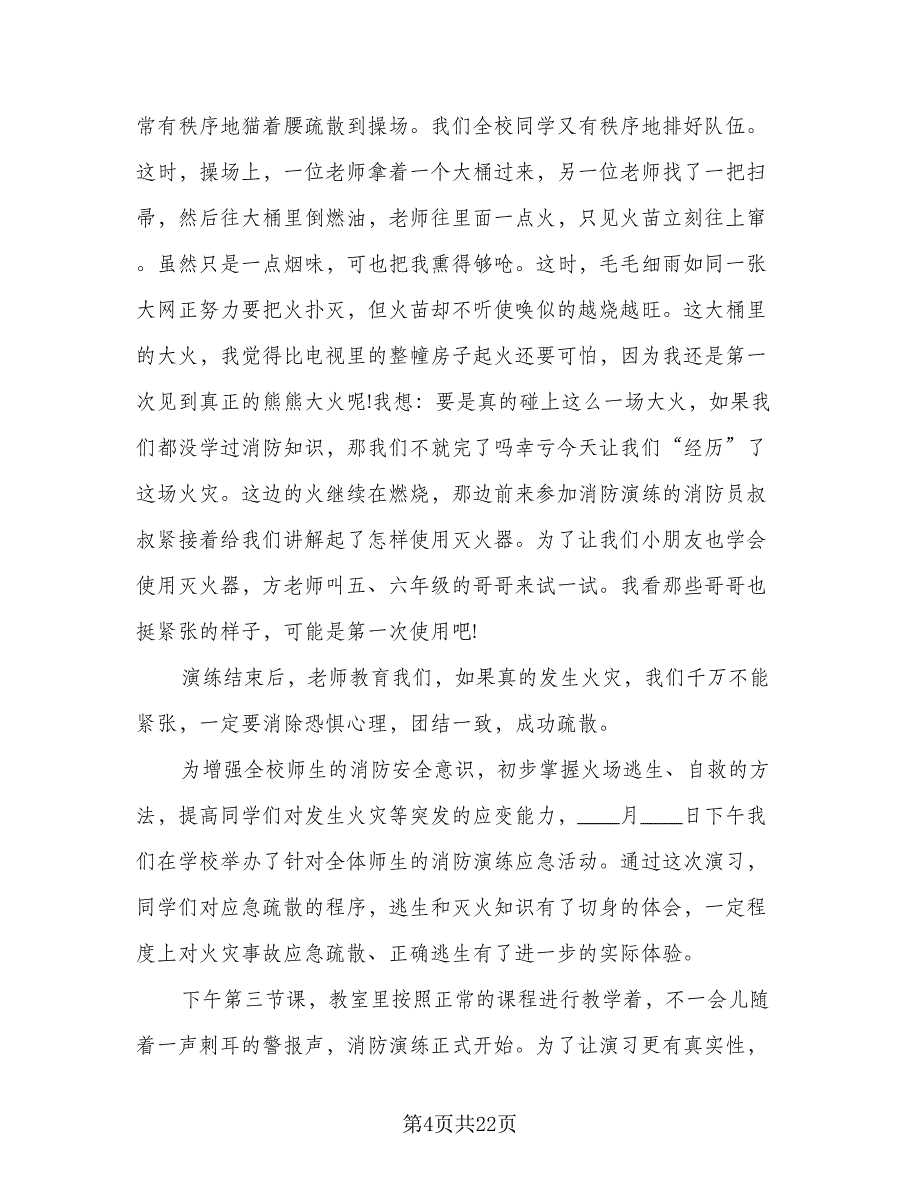 常有秩序地猫着腰疏散到操场。我们全校同学又有秩序地排好队伍。
这时，操场上，一位老师拿着一个大桶过来，另一位老师找了一把扫
帚，然后往大桶里倒燃油，老师往里面一点火，只见火苗立刻往上窜
。虽然只是一点烟味，可也把我熏得够呛。这时，毛毛细雨如同一张
大网正努力要把火扑灭，但火苗却不听使唤似的越烧越旺。这大桶里
的大火，我觉得比电视里的整幢房子起火还要可怕，因为我还是第一
次见到真正的熊熊大火呢!我想：要是真的碰上这么一场大火，如果我
们都没学过消防知识，那我们不就完了吗幸亏今天让我们“经历”了
这场火灾。这边的火继续在燃烧，那边前来参加消防演练的消防员叔
叔紧接着给我们讲解起了怎样使用灭火器。为了让我们小朋友也学会
使用灭火器，方老师叫五、六年级的哥哥来试一试。我看那些哥哥也
挺紧张的样子，可能是第一次使用吧!
演练结束后，老师教育我们，如果真的发生火灾，我们千万不能
紧张，一定要消除恐惧心理，团结一致，成功疏散。
为增强全校师生的消防安全意识，初步掌握火场逃生、自救的方
法，提高同学们对发生火灾等突发的应变能力，____月____日下午我
们在学校举办了针对全体师生的消防演练应急活动。通过这次演习，
同学们对应急疏散的程序，逃生和灭火知识有了切身的体会，一定程
度上对火灾事故应急疏散、正确逃生有了进一步的实际体验。
下午第三节课，教室里按照正常的课程进行教学着，不一会儿随
着一声刺耳的警报声，消防演练正式开始。为了让演习更有真实性，
第4页共22页